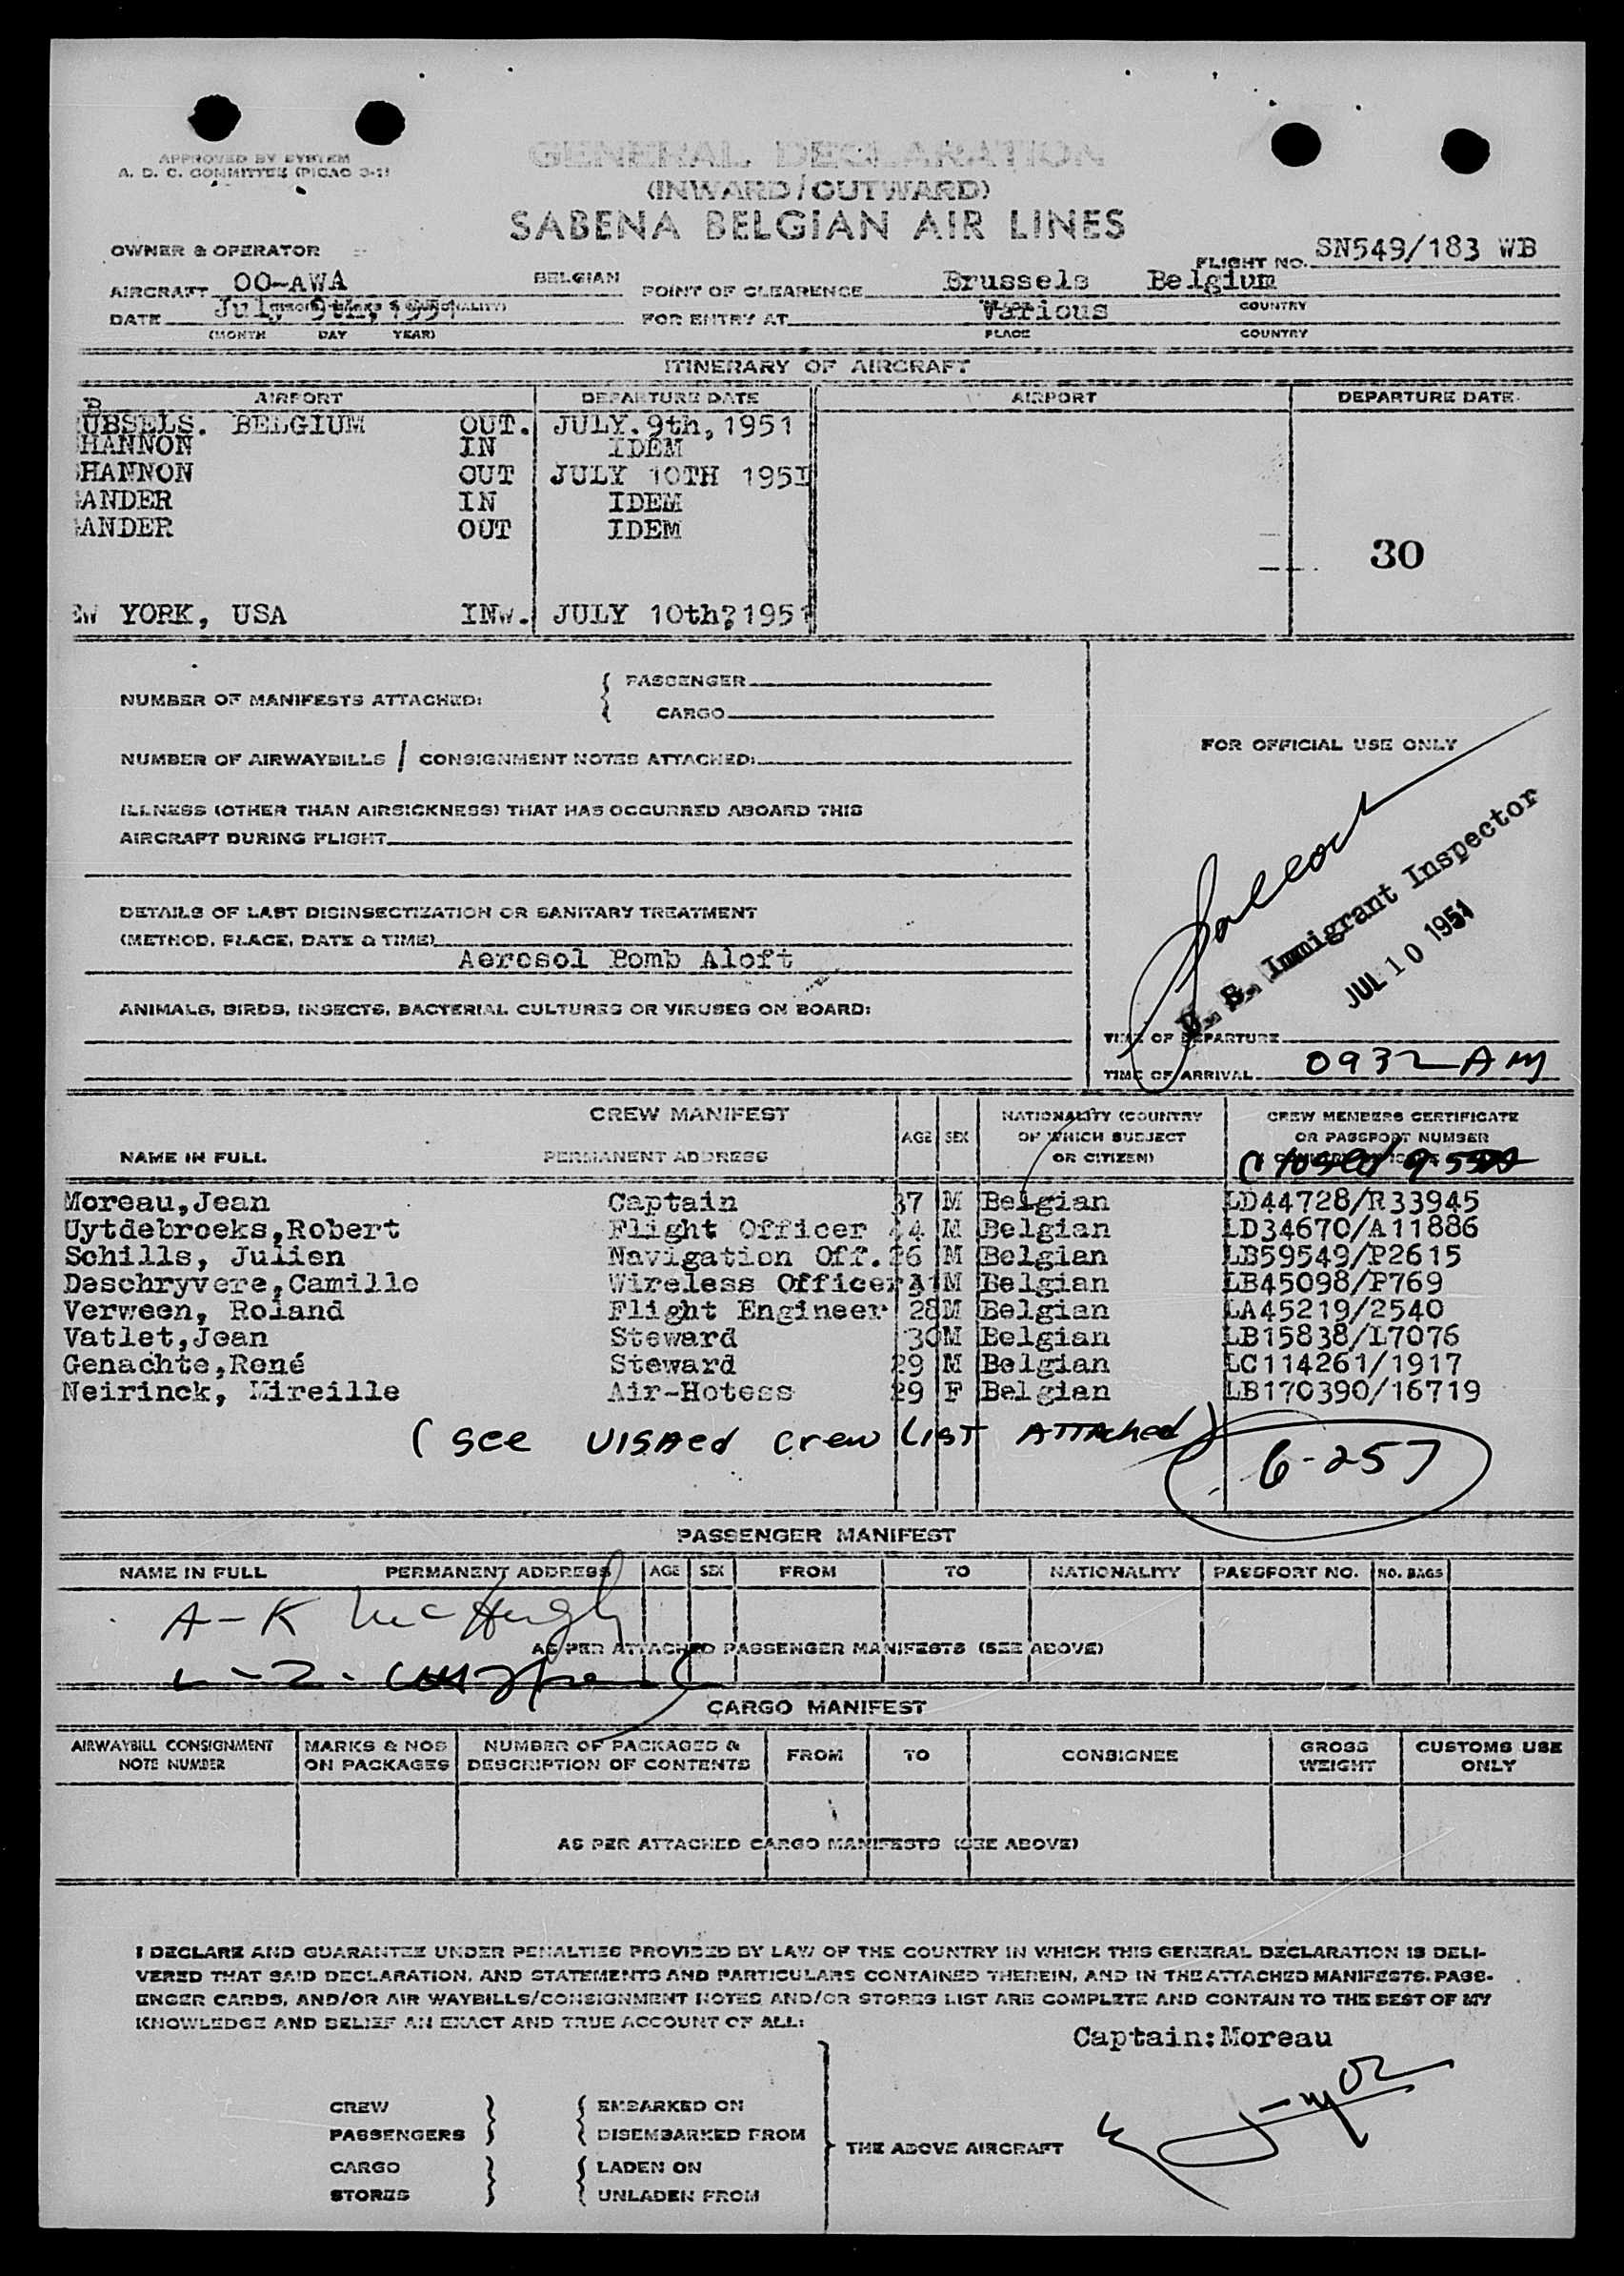 APPROVED BY SYSTEM
A. D. C. COMMITTEE (PICAO 3-1)
GENERAL DECLARATION
(INWARD/OUTWARD)
SABENA BELGIAN AIR LINES
OWNER & OPERATOR
FLIGHT NO. SN549/183 WB
AIRCRAFT OO-AWA BELGIAN
POINT OF CLEARENCE Brussels Belgium
COUNTRY
DATE July 9th, 1951
FOR ENTRY AT Various
(MONTH DAY YEAR)
PLACE COUNTRY
ITINERARY OF AIRCRAFT
AIRPORT DEPARTURE DATE AIRPORT DEPARTURE DATE
UBSELS. BELGIUM OUT. JULY.9th,1951
HANNON IN IDEM
HANNON OUT JULY 10TH 195I
ANDER IN IDEM
ANDER OUT IDEM
30
EW YORK, USA INw. JULY 10th?1951
NUMBER OF MANIFESTS ATTACHED: { PASSENGER
CARGO
FOR OFFICIAL USE ONLY
NUMBER OF AIRWAYBILLS / CONSIGNMENT NOTES ATTACHED:
ILLNESS (OTHER THAN AIRSICKNESS) THAT HAS OCCURRED ABOARD THIS
AIRCRAFT DURING FLIGHT
U. S. Immigrant Inspector
JUL 10 1951
DETAILS OF LAST DISINSECTIZATION OR SANITARY TREATMENT
(METHOD, PLACE, DATE & TIME)
Aerosol Bomb Aloft
ANIMALS, BIRDS, INSECTS, BACTERIAL CULTURES OR VIRUSES ON BOARD:
TIME OF DEPARTURE
TIME OF ARRIVAL 0932 AM
CREW MANIFEST
NAME IN FULL PERMANENT ADDRESS AGE SEX
NATIONALITY (COUNTRY
OF WHICH SUBJECT
OR CITIZEN)
CREW MEMBERS CERTIFICATE
OR PASSPORT NUMBER
Moreau,Jean Captain 37 M Belgian LD44728/R33945
Uytdebroeks,Robert Flight Officer 44 M Belgian LD34670/A11886
Schills, Julien Navigation Off. 26 M Belgian LB59549/P2615
Deschryvere,Camille Wireless Officer 31 M Belgian LB45098/P769
Verween, Roland Flight Engineer 28 M Belgian LA45219/2540
Vatlet,Jean Steward 30 M Belgian LB15838/L7076
Genachte,René Steward 29 M Belgian LC114261/1917
Neirinck, Mireille Air-Hotess 29 F Belgian LB170390/16719
(see VISAed crew LIST ATTAched)
6-257
PASSENGER MANIFEST
NAME IN FULL PERMANENT ADDRESS AGE SEX FROM TO NATIONALITY PASSPORT NO. NO. BAGS
A-K McHugh
AS PER ATTACHED PASSENGER MANIFESTS (SEE ABOVE)
L-Z
CARGO MANIFEST
AIRWAYBILL CONSIGNMENT
NOTE NUMBER
MARKS & NOS
ON PACKAGES
NUMBER OF PACKAGES &
DESCRIPTION OF CONTENTS
FROM TO CONSIGNEE
GROSS
WEIGHT
CUSTOMS USE
ONLY
AS PER ATTACHED CARGO MANIFESTS (SEE ABOVE)
I DECLARE AND GUARANTEE UNDER PENALTIES PROVIDED BY LAW OF THE COUNTRY IN WHICH THIS GENERAL DECLARATION IS DELI-
VERED THAT SAID DECLARATION, AND STATEMENTS AND PARTICULARS CONTAINED THEREIN, AND IN THE ATTACHED MANIFESTS. PASS-
ENGER CARDS, AND/OR AIR WAYBILLS/CONSIGNMENT NOTES AND/OR STORES LIST ARE COMPLETE AND CONTAIN TO THE BEST OF MY
KNOWLEDGE AND BELIEF AN EXACT AND TRUE ACCOUNT OF ALL:
Captain:Moreau
CREW } { EMBARKED ON
PASSENGERS } { DISEMBARKED FROM
THE ABOVE AIRCRAFT
CARGO } { LADEN ON
STORES } { UNLADEN FROM